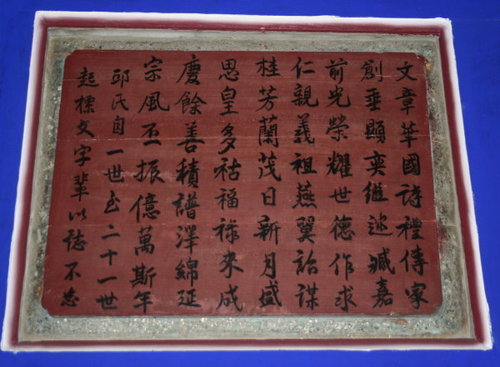 文章華國詩禮傳家
創垂顯奕繼述臧嘉
前光榮耀世德作求
仁親義祖燕翼詒謀
桂芳蘭茂日新月盛
思皇多祜福祿來成
慶餘善積譜澤綿延
宗風丕振億萬斯年
邱氏自一世至二十一世
起標文字輩以誌不忘